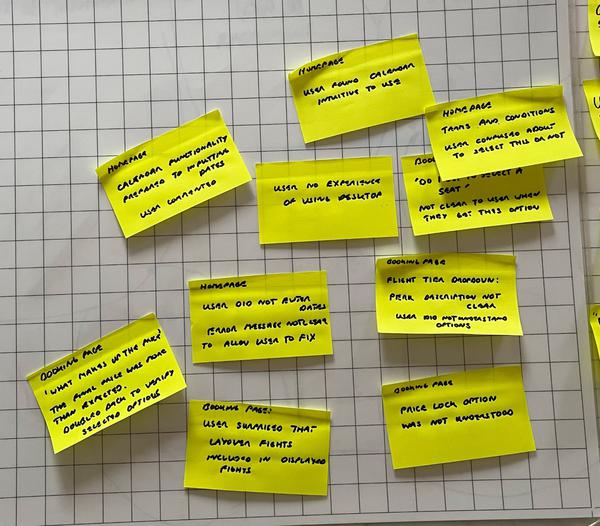 HOMEPAGE
USER FOUND CALENDAR
INTUITIVE TO USE
HOMEPAGE
TERMS AND CONDITIONS
USER CONFUSED ABOUT
TO SELECT THIS OR NOT
HOMEPAGE
CALENDAR FUNCTIONALITY
PREPARED TO INPUTTING
DATES
USER COMMENTED
USER NO EXPERIENCE
OF USING DESKTOP
BOO
"DO TO SELECT A
SEAT"
NOT CLEAR TO USER WHEN
THEY GET THIS OPTION
HOMEPAGE
USER DID NOT ENTER
DATES
ERROR MESSAGE NOT CLEAR
TO ALLOW USER TO FIX
BOOKING PAGE
FLIGHT TIER DROPDOWN:
PERK DESCRIPTION NOT
CLEAR
USER DID NOT UNDERSTAND
OPTIONS
BOOKING PAGE
'WHAT MAKES UP THE PRICE'
THE FINAL PRICE WAS MORE
THAN EXPECTED.
DOUBLED BACK TO VERIFY
SELECTED OPTIONS
BOOKING PAGE:
USER SURPRISED THAT
LAYOVER FIGHTS
INCLUDED IN DISPLAYED
FIGHTS
BOOKING PAGE
PRICE LOCK OPTION
WAS NOT UNDERSTOOD